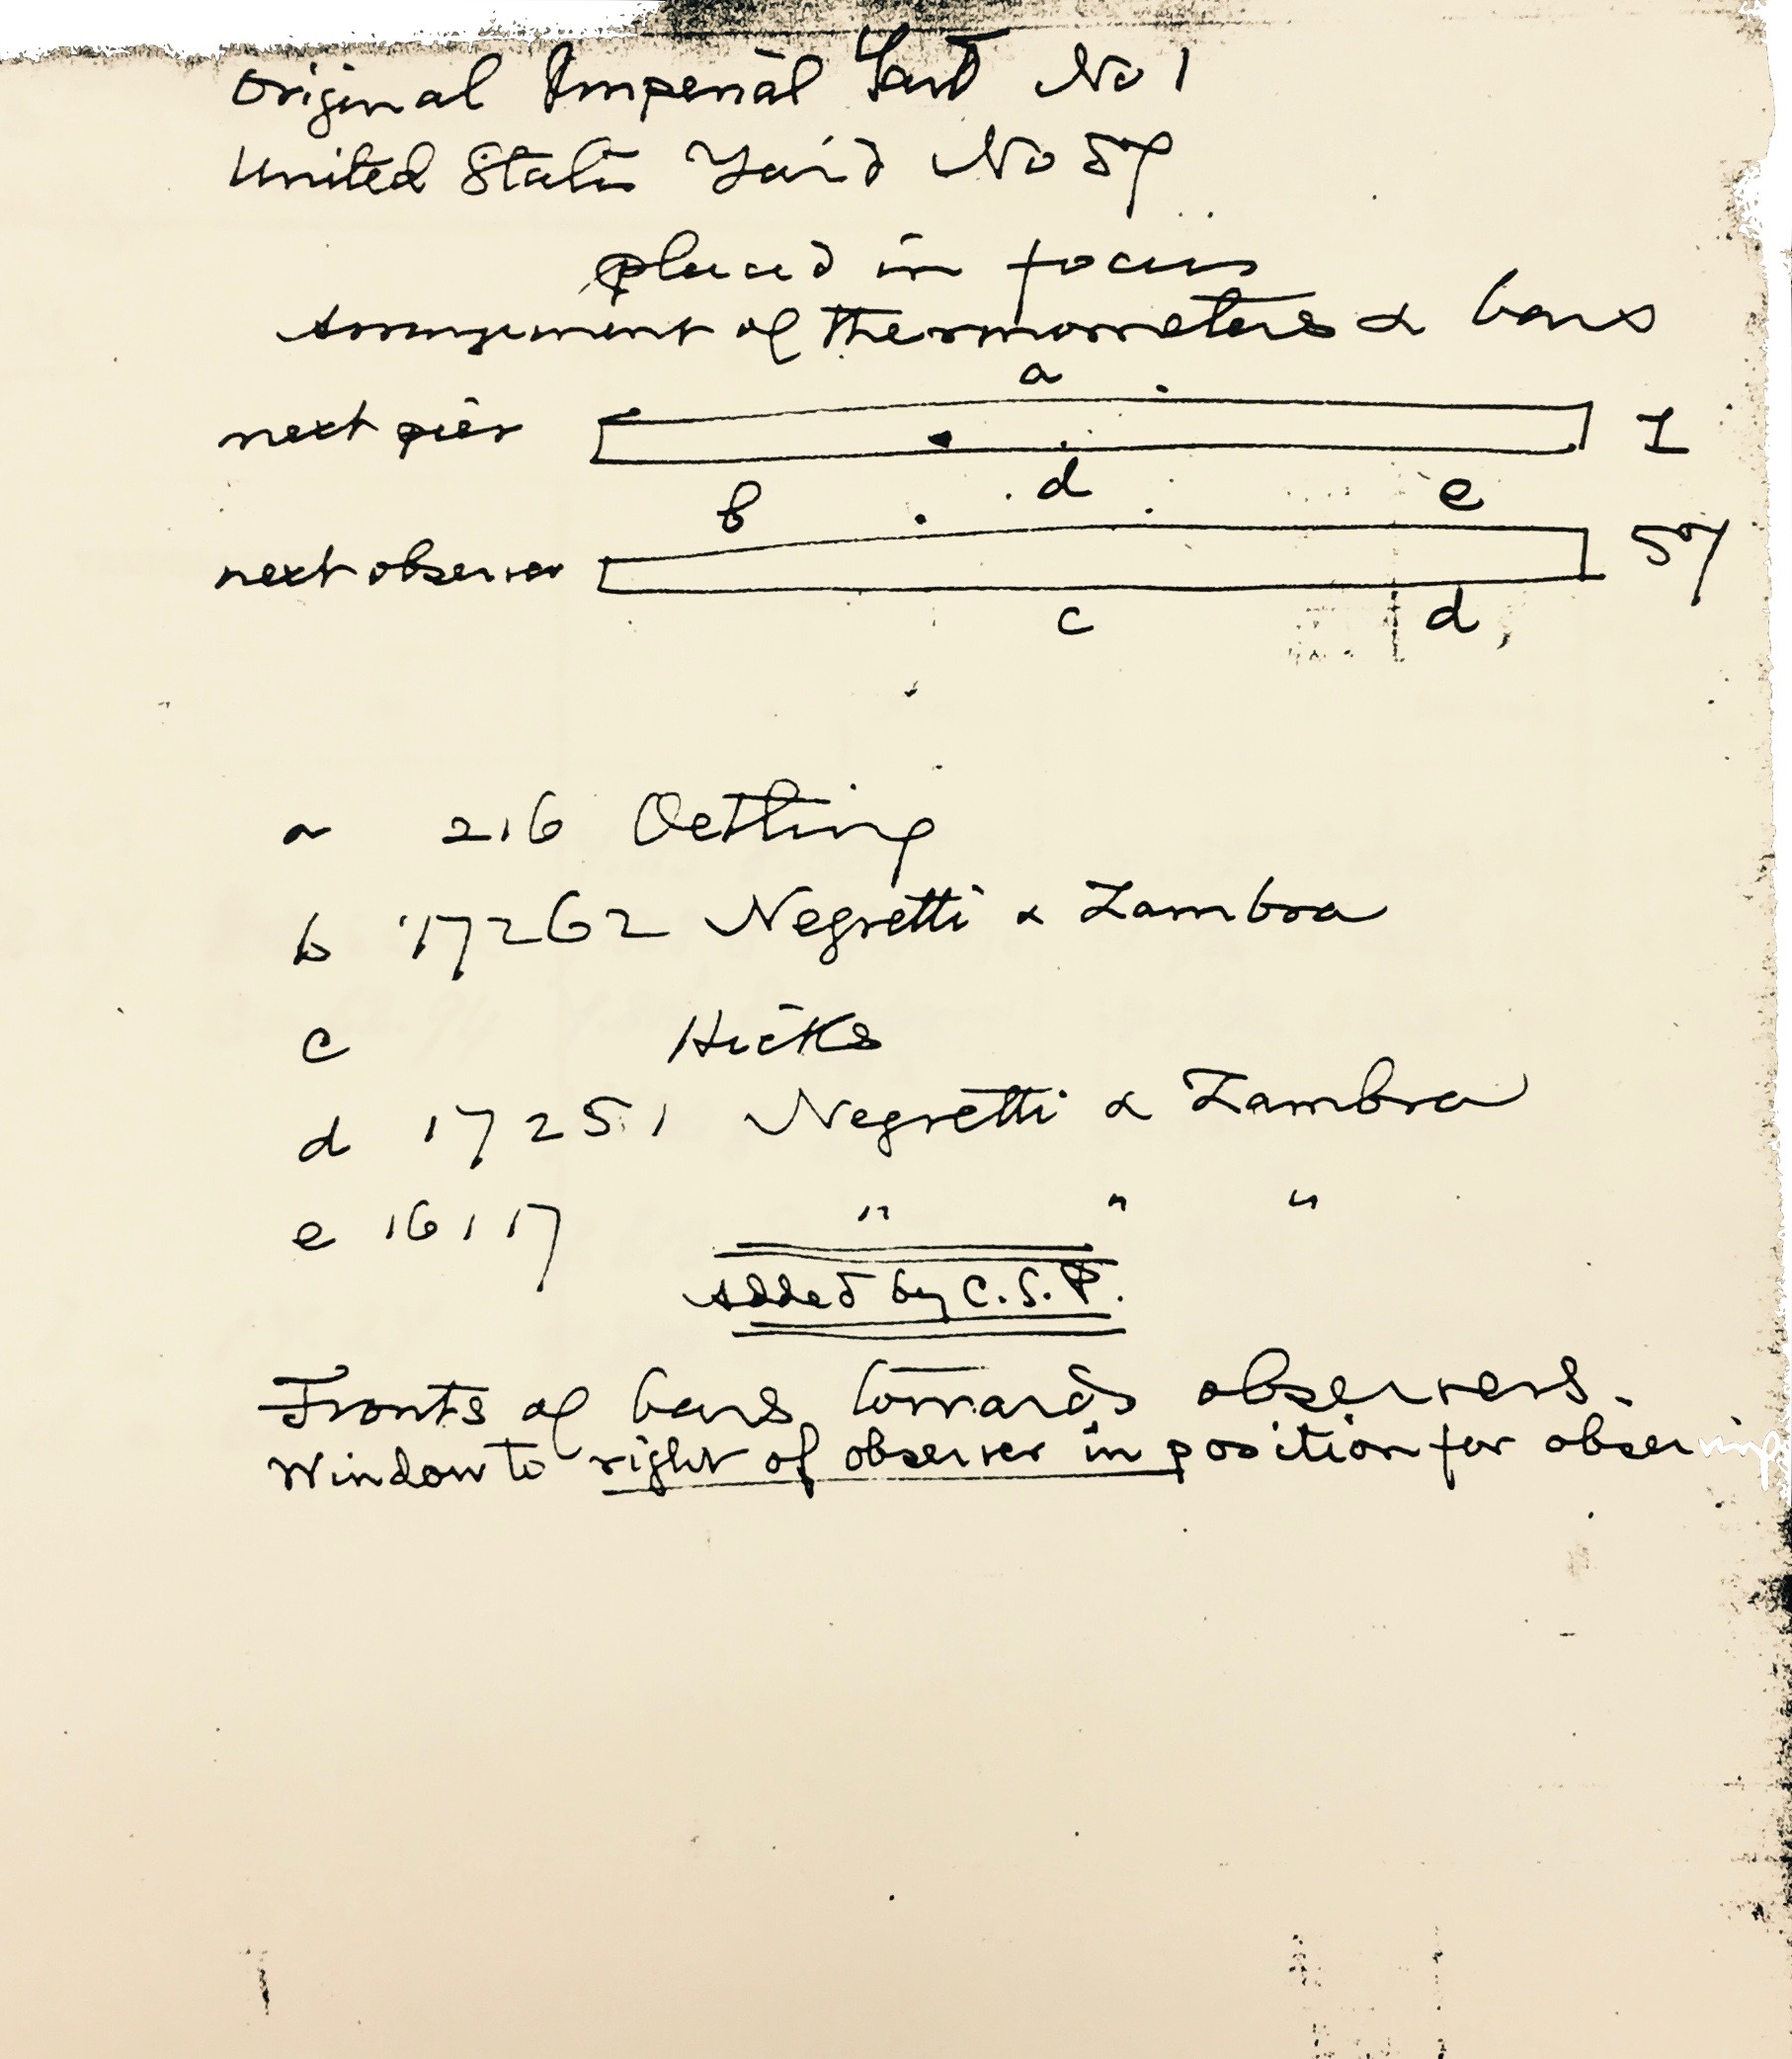 Original Imperial Yard No 1
United States Yard No 57
placed in focus
Arrangement of thermometers & bars
a
next pier 1
b d e
next observer 57
c d
a 216 Oetling
b 17262 Negretti & Zambra
c Hicks
d 17251 Negretti & Zambra
e 16117 " " "
Added by C.S.P.
Fronts of bars towards observers.
Window to right of observer in position for observing